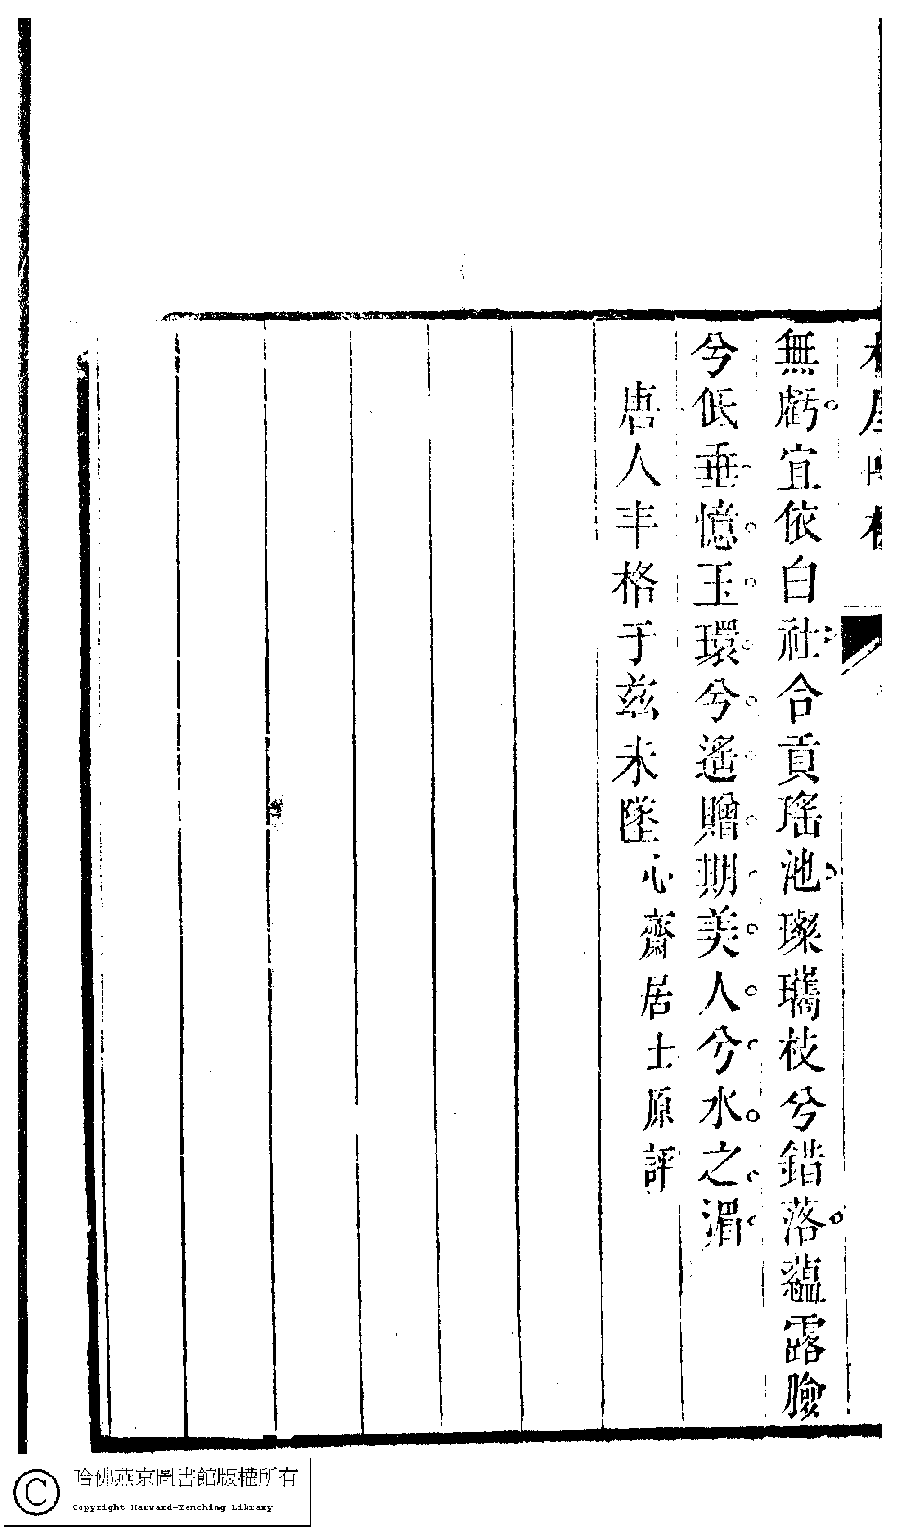 無虧宜依白社合貢瑤池璨瓗枝兮錯落蘊露臉
兮低垂憶玉環兮遙贈期美人兮水之湄
唐人丰格于茲未墜
心齋居士原評
哈佛燕京圖書館版權所有
Copyright Harvard-Yenching Library